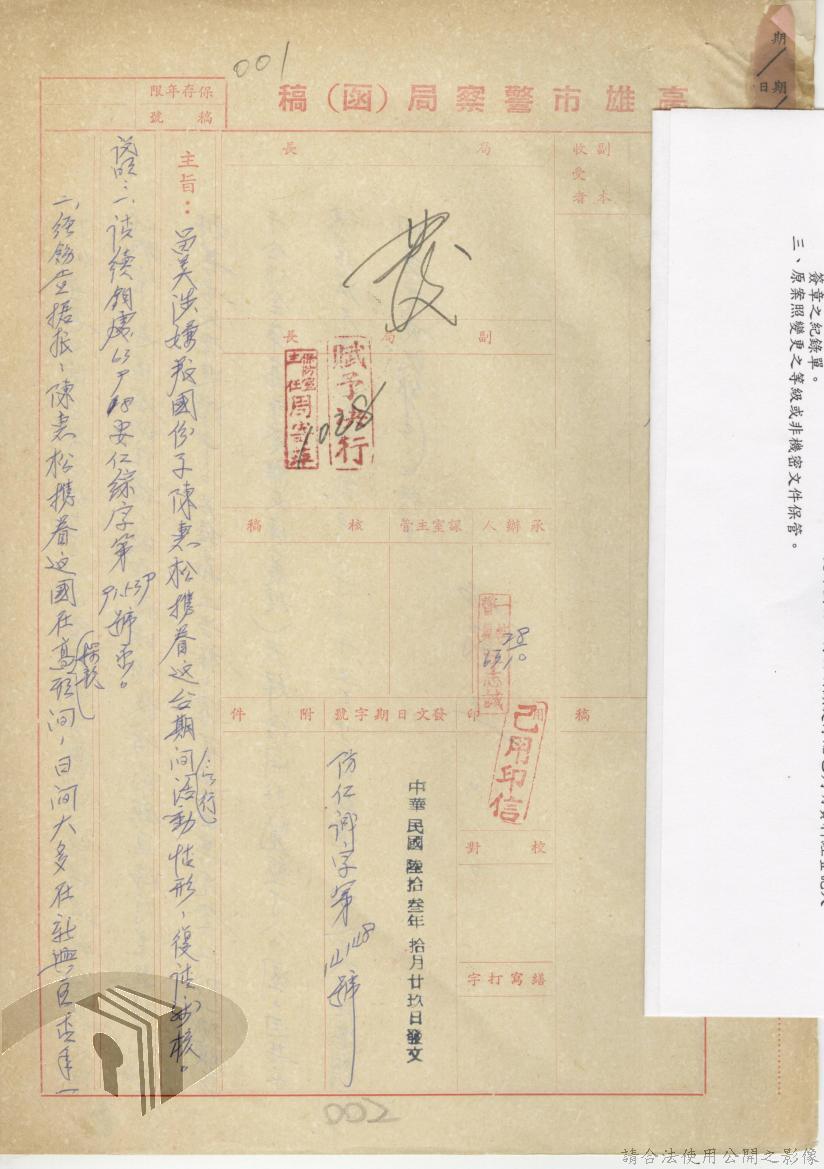 001
高雄市警察局(函)稿
保存年限
稿號
期
期日
副本
收受者
局長
發
副局長
賦予遂行
保防室主任周
1028
承辦人
課室主管
核稿
志誠
稿
用印
已用印信
發文日期字號
附件
校對
繕寫打字
中華民國陸拾叁年拾月廿玖日發文
仿仁調字第14148號
主旨：留美涉嫌叛國份子陳惠松攜眷返台期間活動(言行)情形，復請鑒核。
說明：一、請續鈞處63 9 18安仁綜字第號函。
二、經飭查據報：陳惠松攜眷返國在高期間，日間大多在新興區
簽章之紀錄單。
三、原案照變更之等級或非機密文件保管。
002
請合法使用公開之影像